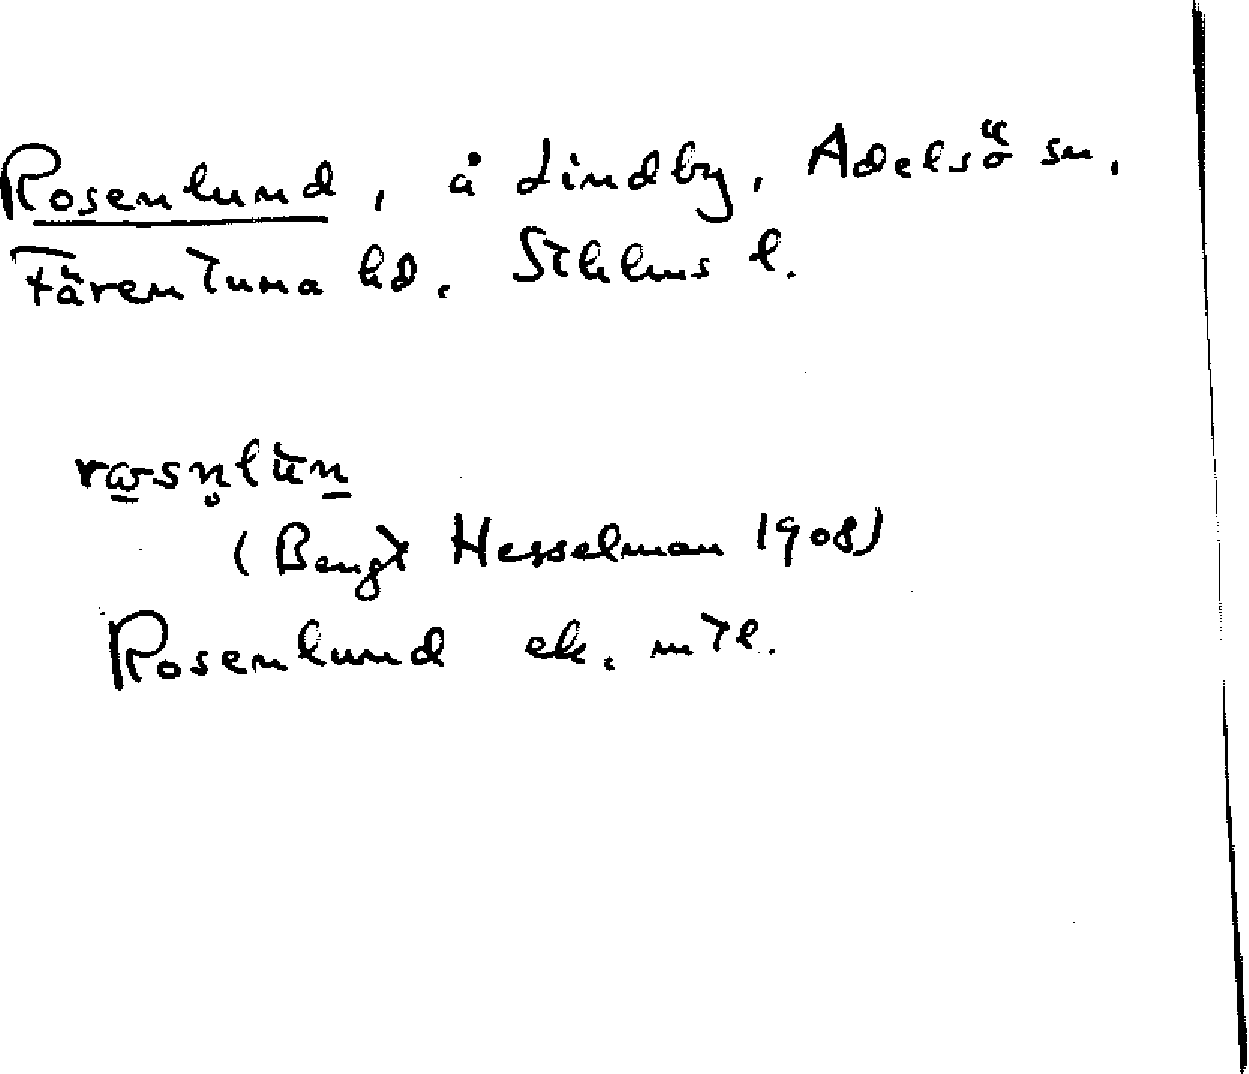 Rosenlund, å Lindby, Adelsö sn,
Färentuna hd. Sthlms l.
(Bengt Hesselman 1908)
Rosenlund ek. mtl.